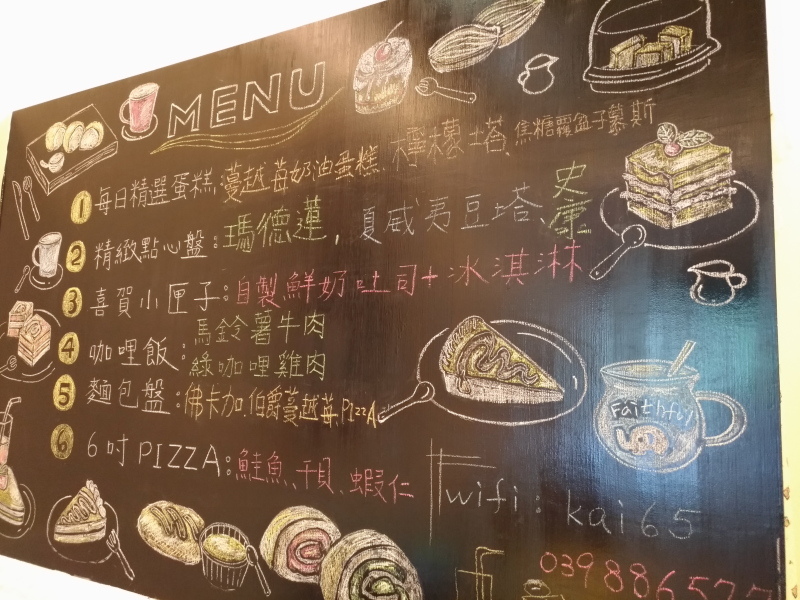 MENU
① 每日精選蛋糕:蔓越莓奶油蛋糕、檸檬塔、焦糖蘿盆子慕斯
② 精緻點心盤:瑪德蓮,夏威夷豆塔、史康
③ 喜賀小匣子:自製鮮奶吐司+冰淇淋
④ 咖哩飯:馬鈴薯牛肉
綠咖哩雞肉
⑤ 麵包盤:佛卡加,伯爵蔓越莓,PIZZA
⑥ 6吋PIZZA:鮭魚、干貝、蝦仁
Faithful
wifi:kai65
039886527